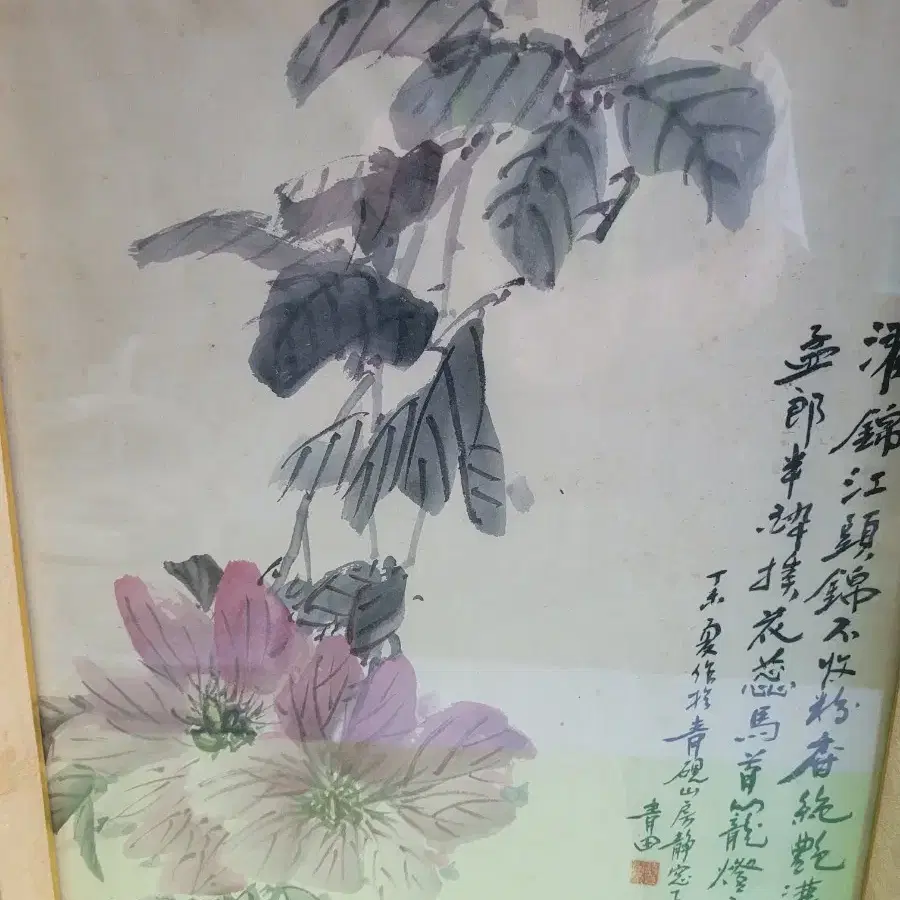 濯錦江頭錦不收粉香絶艶
孟郎半醉挨花蕊馬首籠燈
丁未夏作於青硯山房静窓下
青田